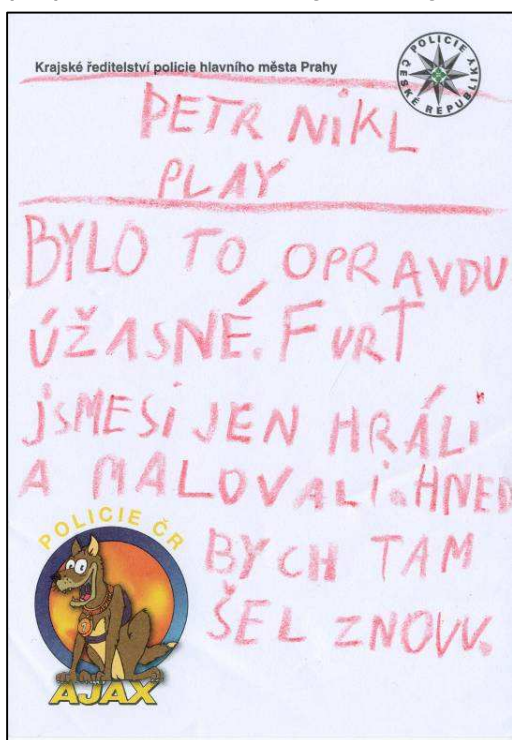 Krajské ředitelství policie hlavního města Prahy
POLICIE ČESKÉ REPUBLIKY
PETR NIKL
PLAY
BYLO TO OPRAVDU
ÚŽASNÉ. FURT
JSMESI JEN HRÁLI
A MALOVALI. HNED
BYCH TAM
ŠEL ZNOVU.
POLICIE ČR
AJAX